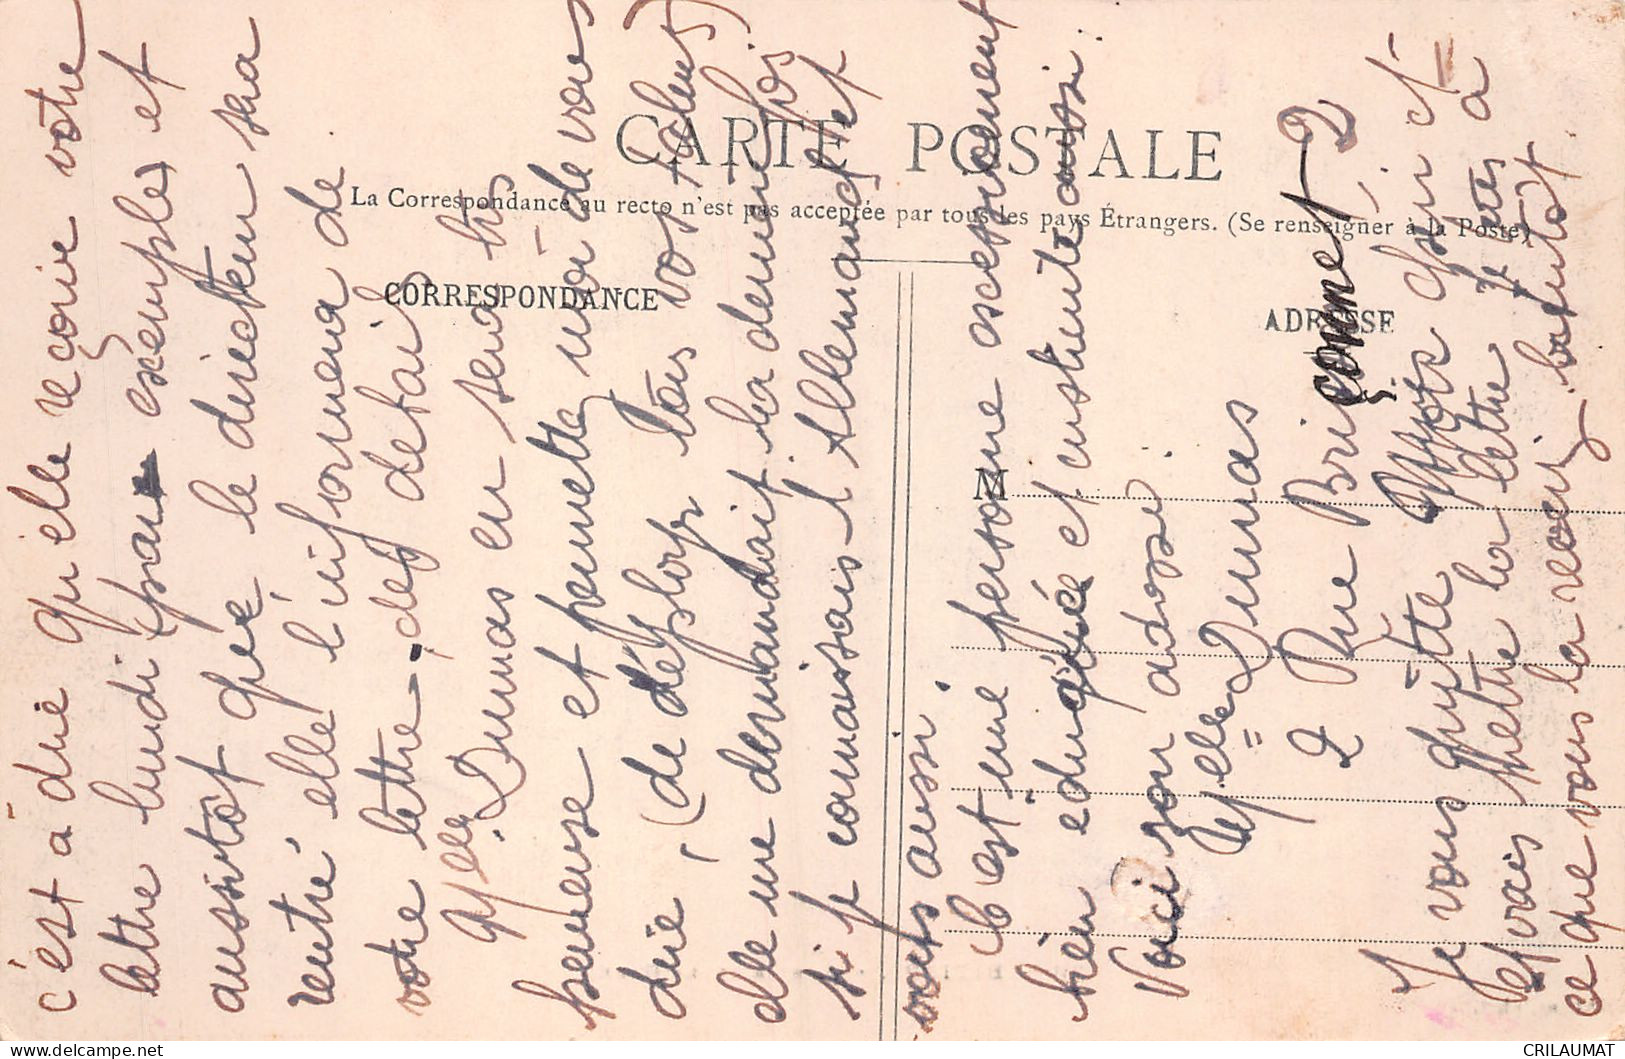 CARTE POSTALE
La Correspondance au recto n'est pas acceptée par tous les pays Étrangers. (Se renseigner à la Poste)
CORRESPONDANCE
ADRESSE
M
c'est à dire qu'elle reçoive votre
lettre lundi (par exemple) et
aussitôt que le directeur sera
rentré elle l'informera de
votre lettre - des détail
Melle Dumas en sera très
heureuse et permettez moi de vous
dire, (de déplo tous vos talents)
elle me demandait la dernière fois
si je connaissais l'Allemand et
vous aussi.
C'est une personne excessivement
bien éduquée et instruite aussi.
Voici son adresse
Melle Dumas
2 Rue Briçonnet 2
Je vous quitte chéri et
et vais mettre la lettre à
ce que vous la receviez bientôt
CRILAUMAT